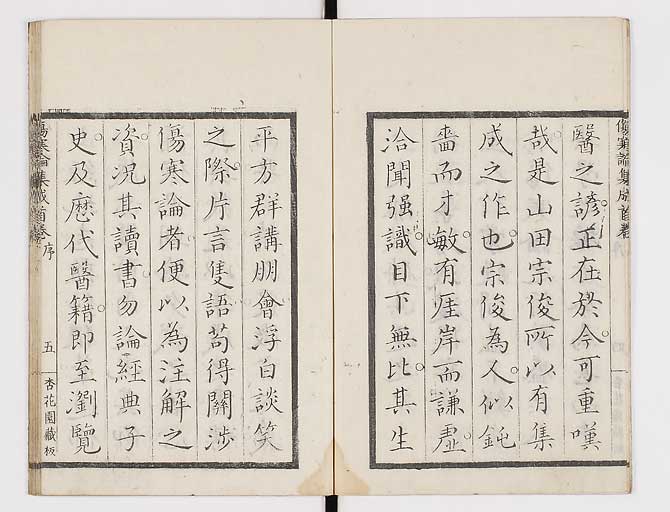 醫之諺。正在於今。可重嘆
哉。是山田宗俊所以有集
成之作也。宗俊為人。似鈍
嗇而才敏。有崖岸而謙虛。
洽聞强識。目下無比。其生
傷寒論集成首卷
平方群講朋會浮白談笑
之際。片言隻語。苟得關涉
傷寒論者。便以為注解之
資。況其讀書。勿論經典子
史及歷代醫籍。即至瀏覽
傷寒論集成首卷 序 五 杏花園藏板